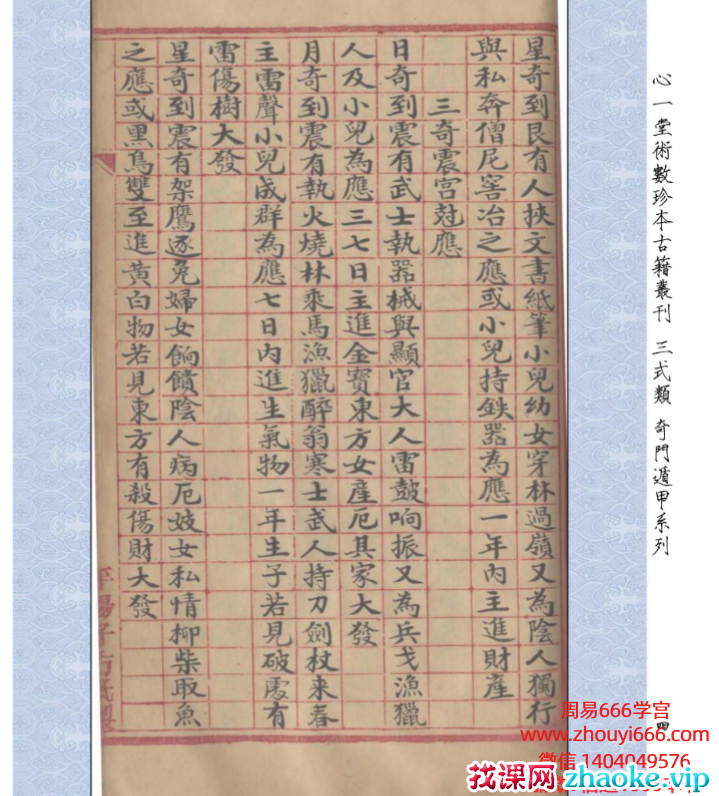 心一堂術數珍本古籍叢刊 三式類 奇門遁甲系列
星奇到艮有人挾文書紙筆小兒幼女穿林過嶺又為陰人獨行
與私奔僧尼窖冶之應或小兒持鉄器為應一年內主進財產
三奇震宮尅應
日奇到震有武士執器械與顯官大人雷鼓响振又為兵戈漁獵
人及小兒為應三七日主進金寶東方女產厄其家大發
月奇到震有執火燒林乘馬漁獵醉翁寒士武人持刀劍杖来春
主雷聲小兒成群為應七日內進生氣物一年生子若見破處有
雷傷樹大發
星奇到震有架鷹逐兔婦女餉饋陰人病厄妓女私情柳柴取魚
之應或黑鳥雙至進黃白物若見東方有殺傷財大發
四
周易666学宫
www.zhouyi666.com
微信 1404049576
找课网 zhaoke.vip